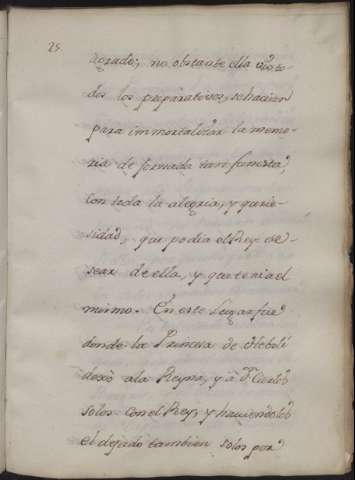 25
agrado; no obstante ella vio to-
dos los preparatorios, se hacien
para immortalizar la memo-
ria de jornada tan funesta,
con toda la alegria, y curio-
sidad, que podia el Rey de-
sear de ella, y que tenia el
mismo. En este Lugar fue
donde la Princesa de Heboli
dexò a la Reyna, y à Dn Carlos
solos con el Rey, y haviendolos
el dejado tambien solos por